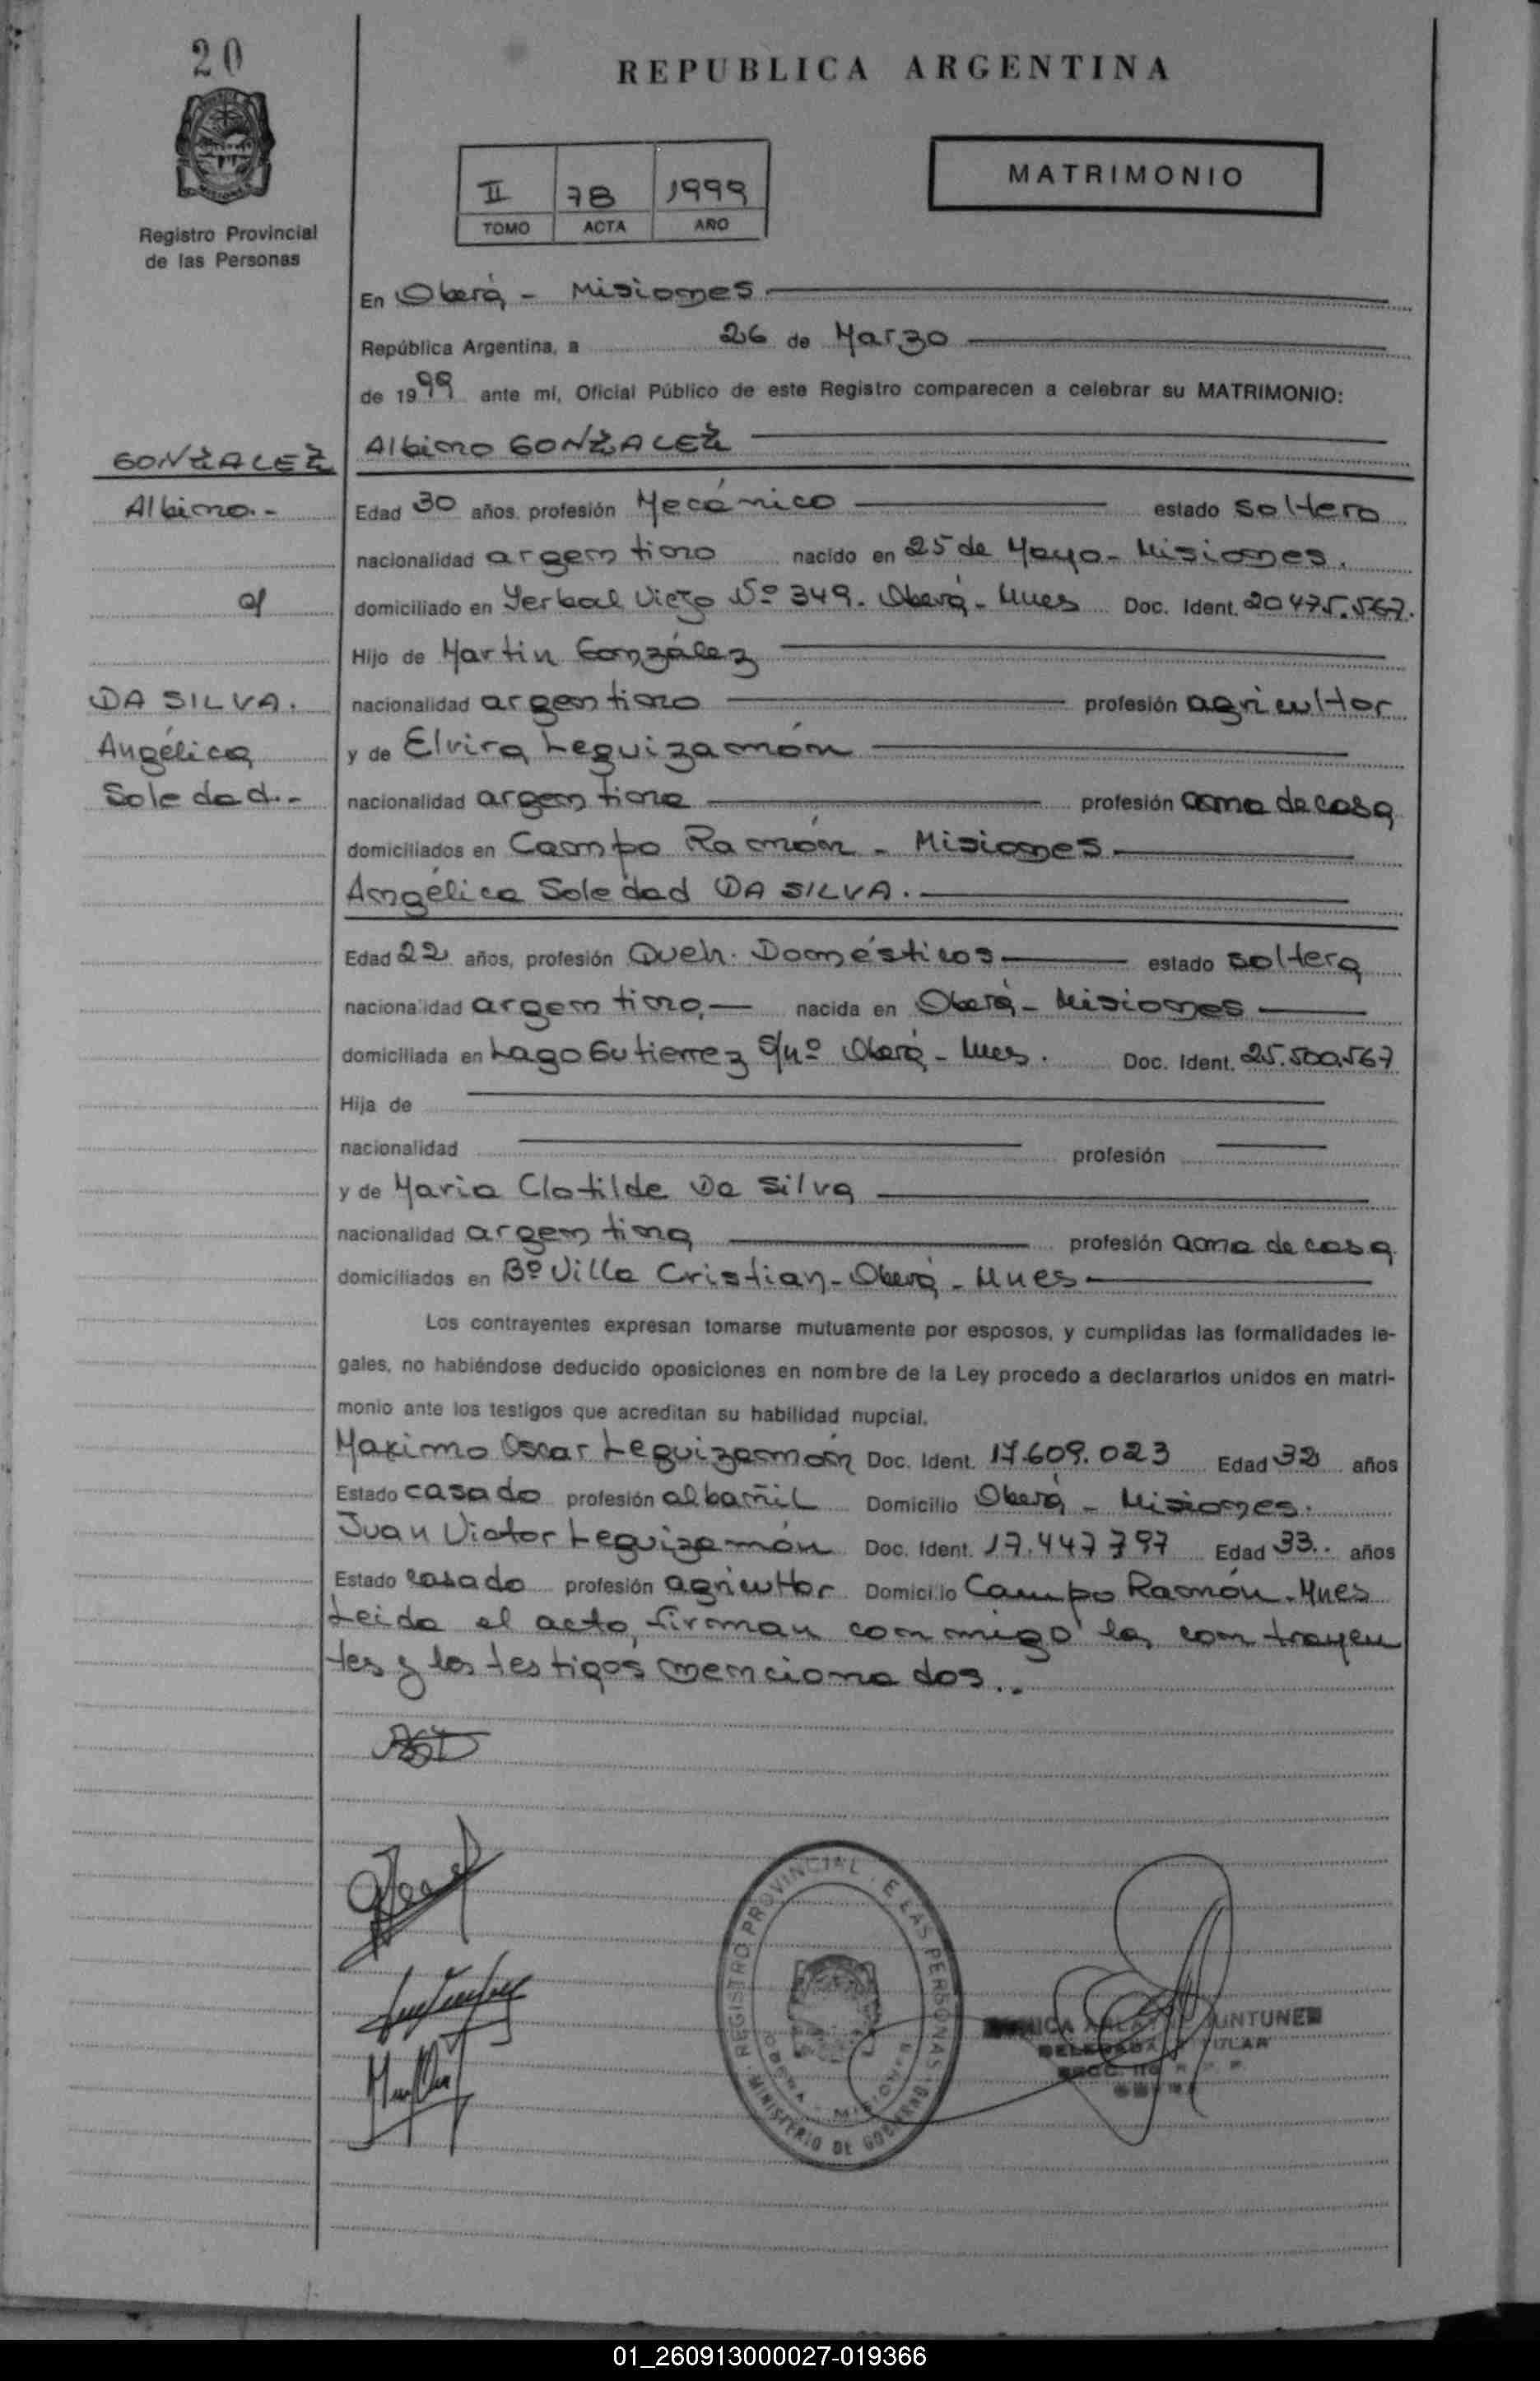 20
REPUBLICA ARGENTINA
MATRIMONIO
II 78 1999
TOMO ACTA AÑO
Registro Provincial
de las Personas
En Oberá - Misiones
República Argentina, a 26 de Marzo
de 1999 ante mí, Oficial Público de este Registro comparecen a celebrar su MATRIMONIO:
GONZALEZ
Albino GONZALEZ
Albino.-
Edad 30 años, profesión Mecánico estado soltero
nacionalidad argentino nacido en 25 de Mayo - Misiones.
domiciliado en Yerbal Viejo Nº 349. Oberá - Mnes Doc. Ident. 20475.567.
Hijo de Martin González
DA SILVA.
nacionalidad argentino profesión agricultor
Angélica
y de Elvira Leguizamón
Soledad.-
nacionalidad argentina profesión ama de casa
domiciliados en Campo Ramón - Misiones
Angélica Soledad DA SILVA.
Edad 22 años, profesión Queh. Domésticos estado soltera
nacionalidad argentina nacida en Oberá - Misiones
domiciliada en Lago Gutierrez S/nº Oberá - Mnes. Doc. Ident. 25.500.567
Hija de
nacionalidad profesión
y de Maria Clotilde Da Silva
nacionalidad argentina profesión ama de casa
domiciliados en Bº Villa Cristian - Oberá - Mnes
Los contrayentes expresan tomarse mutuamente por esposos, y cumplidas las formalidades le-
gales, no habiéndose deducido oposiciones en nombre de la Ley procedo a declararlos unidos en matri-
monio ante los testigos que acreditan su habilidad nupcial.
Maximo Oscar Leguizamón Doc. Ident. 17.609.023 Edad 32 años
Estado casado profesión albañil Domicilio Oberá - Misiones.
Juan Victor Leguizamón Doc. Ident. 17.447797 Edad 33.. años
Estado casado profesión agricultor Domicilio Campo Ramón - Mnes
Leida el acta, firman conmigo los contrayen
tes y los testigos mencionados..
REGISTRO PROVINCIAL E LAS PERSONAS
OBERA - MISIONES
MINISTERIO DE GOBIERNO
01_260913000027-019366